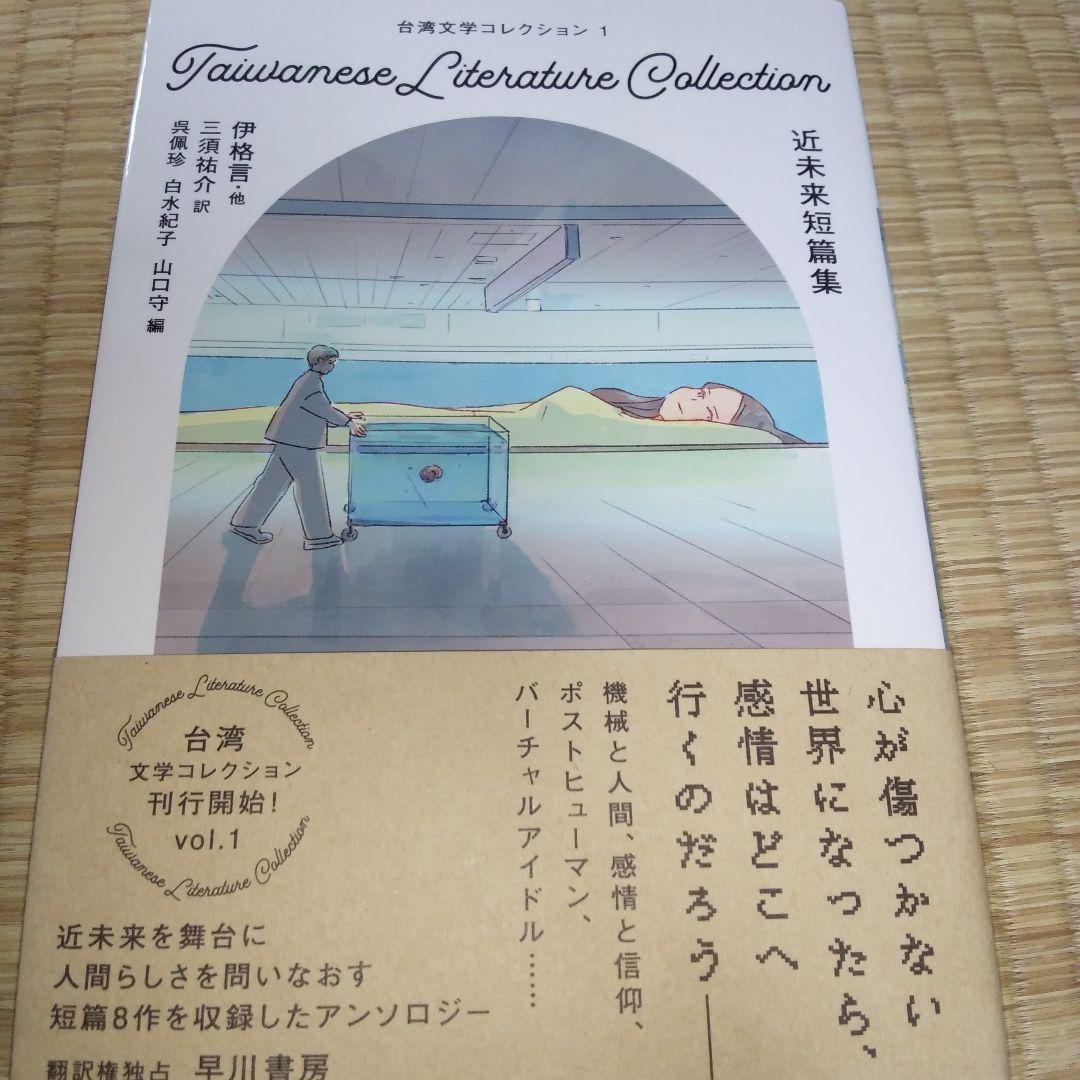 台湾文学コレクション 1
Taiwanese Literature Collection
近未来短篇集
伊格言・他
三須祐介 訳
呉佩珍 白水紀子 山口守 編
心が傷つかない
世界になったら、
感情はどこへ
行くのだろう――
機械と人間、感情と信仰、
ポストヒューマン、
バーチャルアイドル……
Taiwanese Literature Collection
台湾
文学コレクション
刊行開始!
vol.1
Taiwanese Literature Collection
近未来を舞台に
人間らしさを問いなおす
短篇8作を収録したアンソロジー
翻訳権独占 早川書房